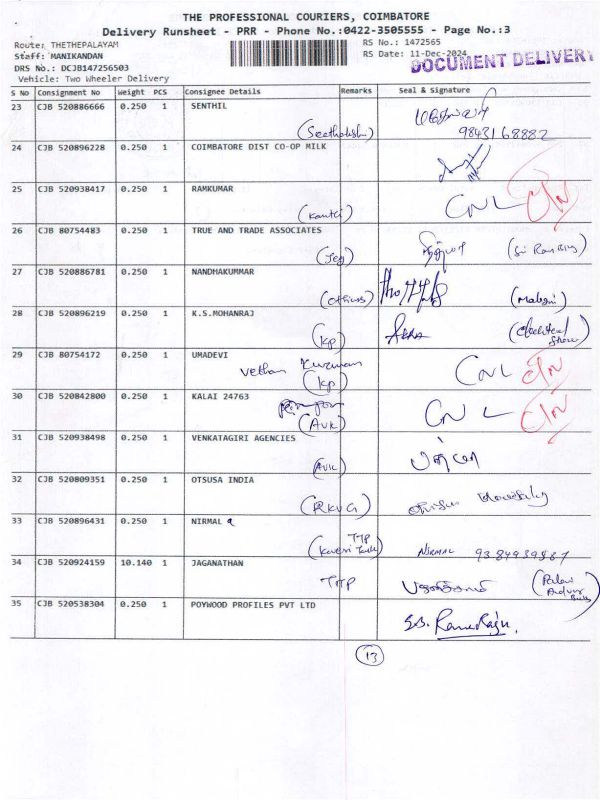 THE PROFESSIONAL COURIERS, COIMBATORE
Delivery Runsheet - PRR - Phone No.:0422-3505555 - Page No.:3
Route: THETHEPALAYAM
Staff: MANIKANDAN
DRS No.: DCJB147256503
Vehicle: Two Wheeler Delivery
RS No.: 1472565
RS Date: 11-Dec-2024
DOCUMENT DELIVERY
S No Consignment No Weight PCS Consignee Details Remarks Seal & Signature
23 CJB 520886666 0.250 1 SENTHIL
9843168882
24 CJB 520896228 0.250 1 COIMBATORE DIST CO-OP MILK
25 CJB 520938417 0.250 1 RAMKUMAR
CNL C/N
26 CJB 80754483 0.250 1 TRUE AND TRADE ASSOCIATES
(Jeg)
27 CJB 520886781 0.250 1 NANDHAKUMMAR
28 CJB 520896219 0.250 1 K.S.MOHANRAJ
(KP)
29 CJB 80754172 0.250 1 UMADEVI
(KP) CNL C/N
30 CJB 520842800 0.250 1 KALAI 24763
(AVK) CNL C/N
31 CJB 520938498 0.250 1 VENKATAGIRI AGENCIES
(AVK)
32 CJB 520809351 0.250 1 OTSUSA INDIA
(RKVG)
33 CJB 520896431 0.250 1 NIRMAL
TTP
NIRMAL
34 CJB 520924159 10.140 1 JAGANATHAN
TTP
35 CJB 520538304 0.250 1 POYWOOD PROFILES PVT LTD
13